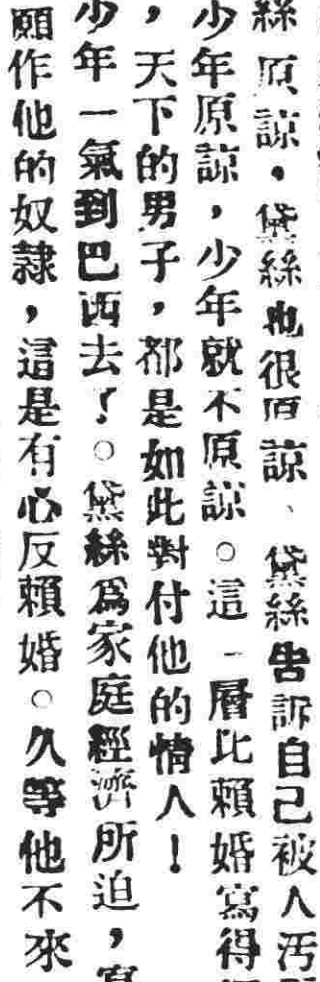 絲原諒，黛絲也很原諒、黛絲告訴自己被人汚
少年原諒，少年就不原諒。這一層比賴婚寫得
，天下的男子，都是如此對付他的情人！
少年一氣到巴西去了。黛絲爲家庭經濟所迫，寫
願作他的奴隸，這是有心反賴婚。久等他不來